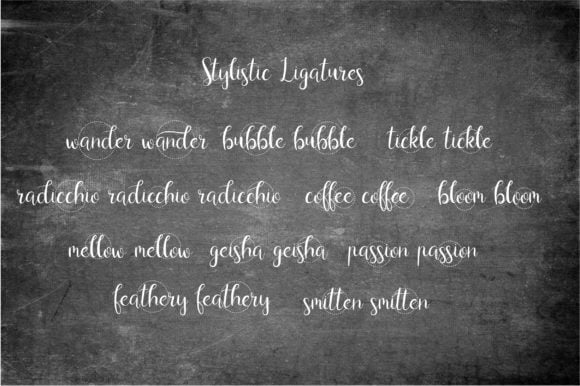 Stylistic Ligatures
wander wander bubble bubble tickle tickle
radicchio radicchio radicchio coffee coffee bloom bloom
mellow mellow geisha geisha passion passion
feathery feathery smitten smitten